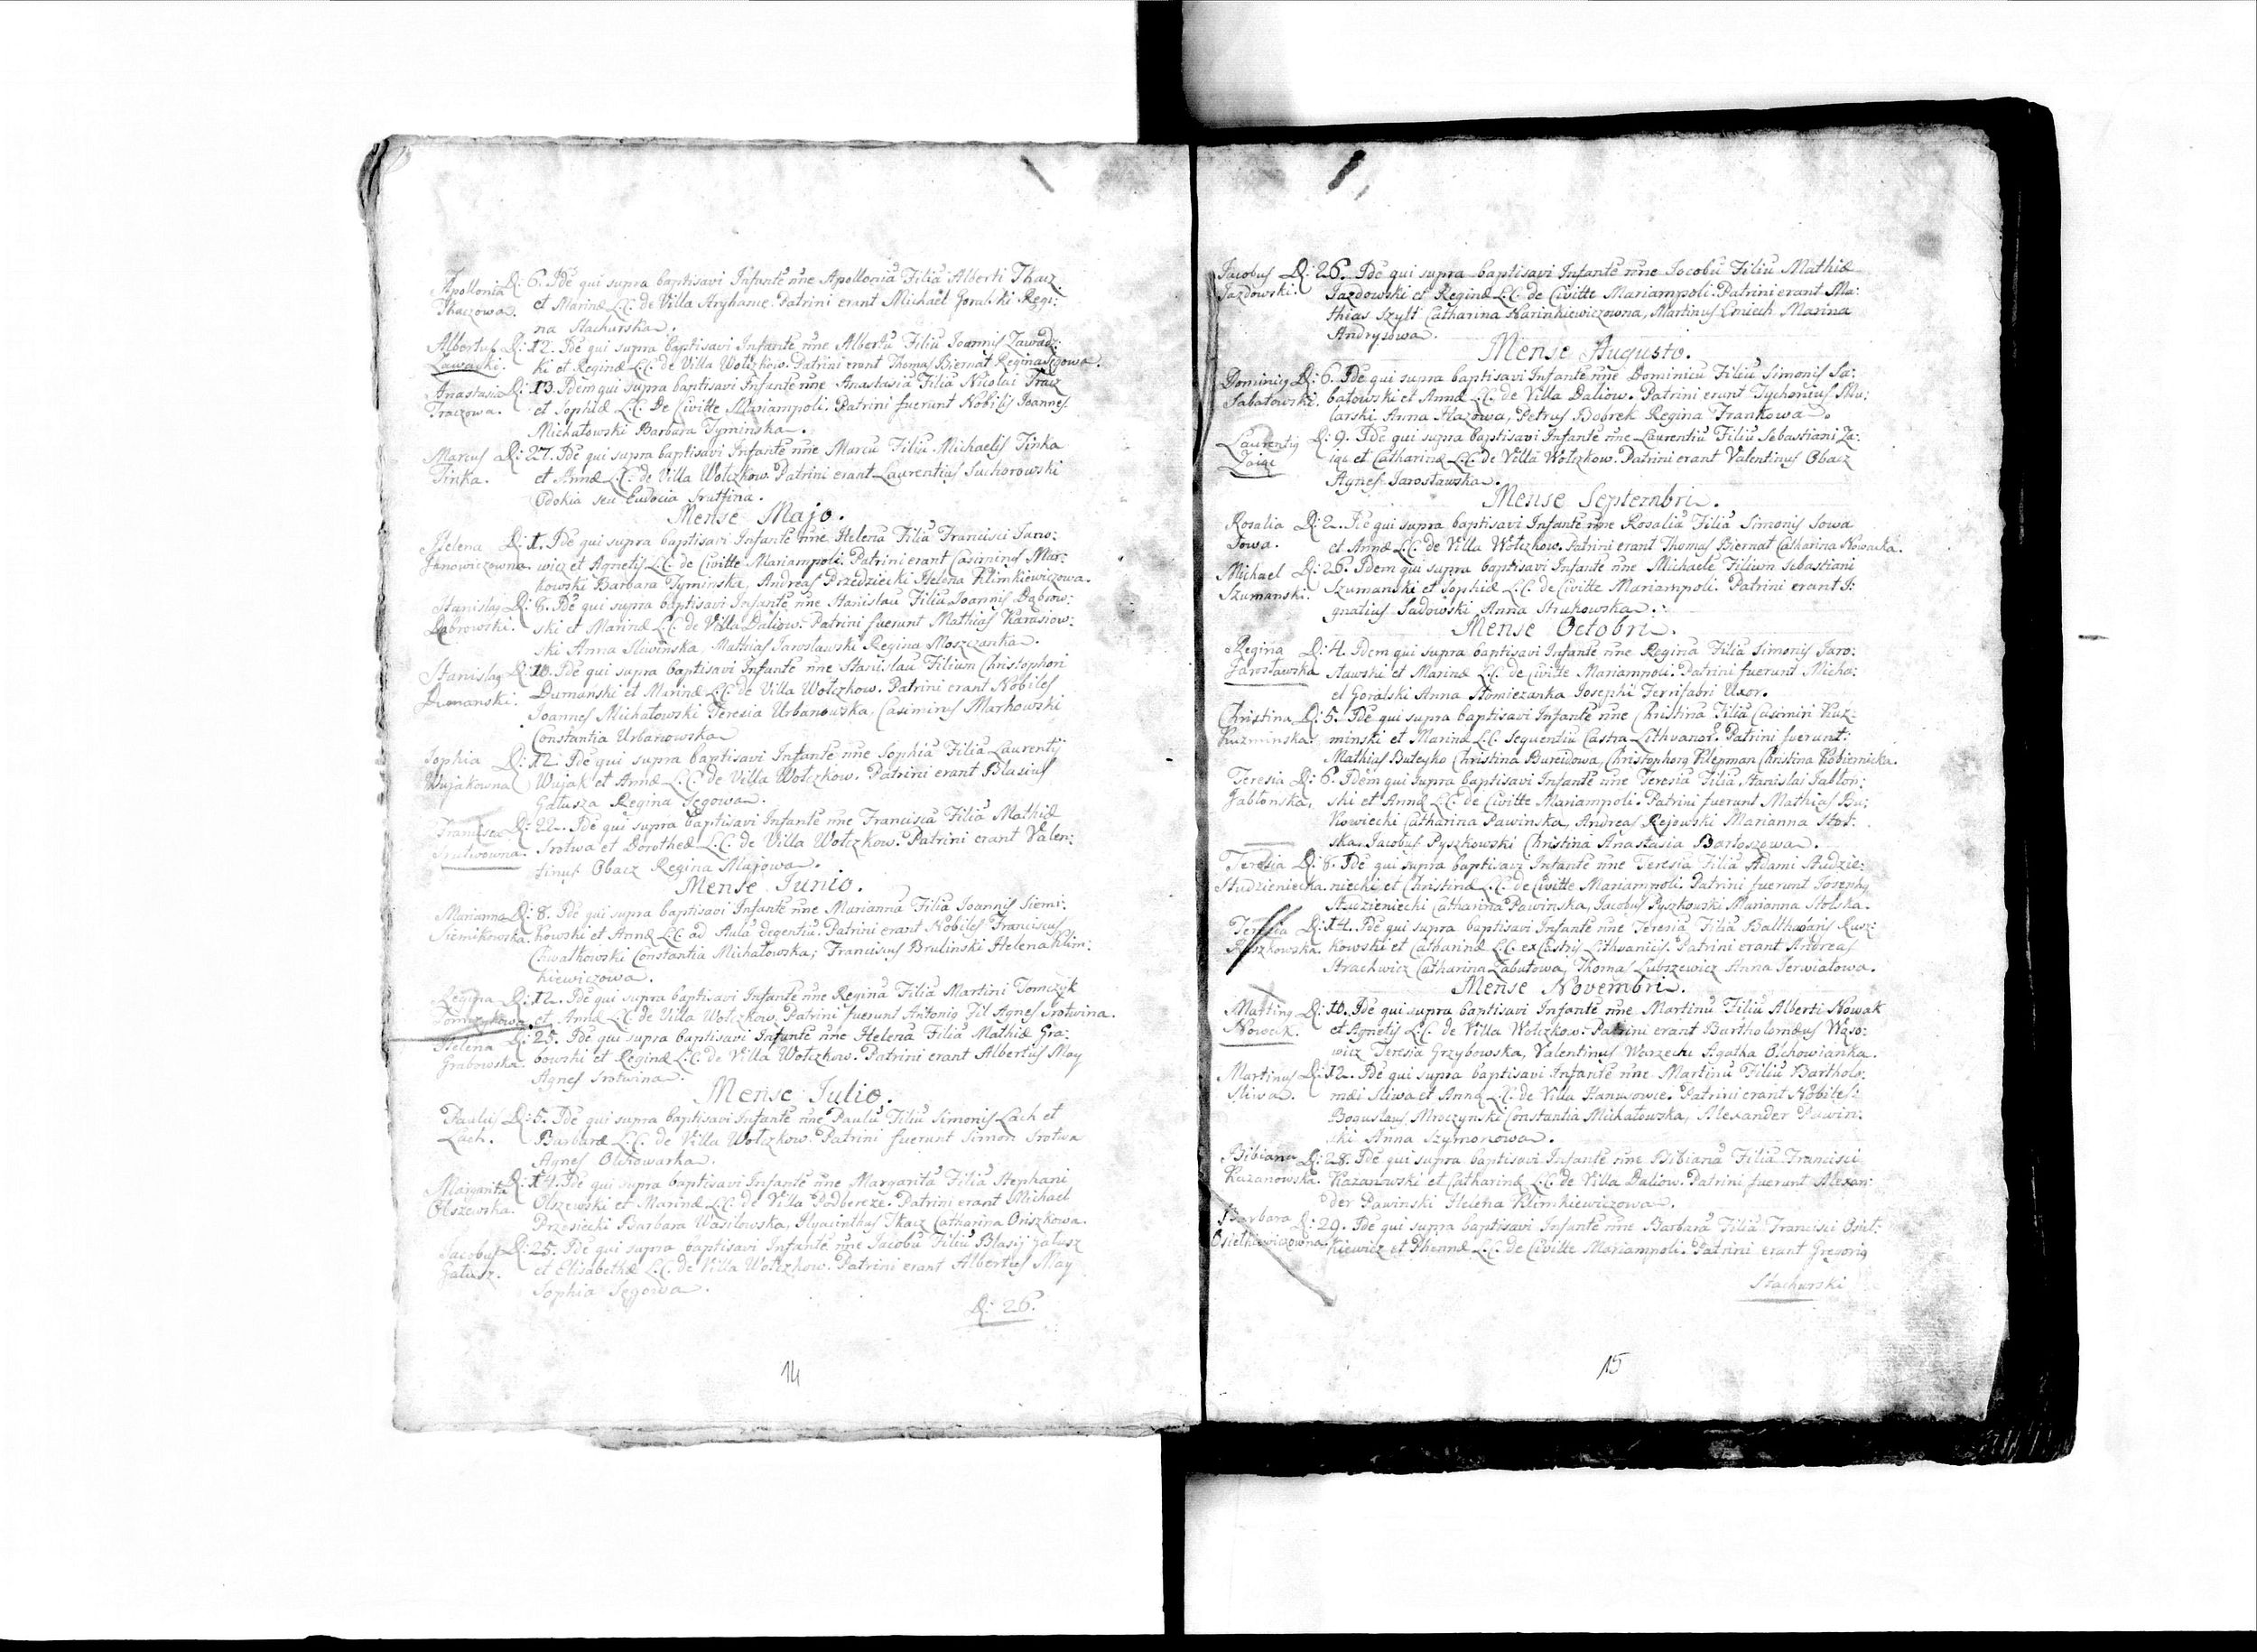 Apollonia Tkaczowa. D: 6. Idē qui supra baptisavi Infantē nñe Apolloniā Filiā Alberti Tkacz
et Marinæ L.C. de Villa Patrini erant Michaël Goralski Regi:
na Stachurska.
Albertus D: 12. Idē qui supra baptisavi Infantē nñe Albertū Filiū Joannis Zawadz:
ki et Reginæ L.C. de Villa Wołczkow. Patrini erant Thomas Biernat Regina Segowa.
Anastasia Traczowa. D: 13. Idem qui supra baptisavi Infantē nñe Anastasiā Filiā Nicolai Tracz
et Sophiæ L.C. De Civitte Mariampoli. Patrini fuerunt Nobilis Joannes
Michałowski Barbara Tyminska.
Marcus Tinka. D: 27. Idē qui supra baptisavi Infantē nñe Marcū Filiū Michaelis Tinka
et Annæ L.C. de Villa Wołczkow. Patrini erant Laurentius Suchorowski
Odokia seu Eudocia
Mense Majo.
Helena Janowiczowna. D: 1. Idē qui supra baptisavi Infantē nñe Helenā Filiā Francisci Jano:
wicz et Agnetis L.C. de Civitte Mariampoli. Patrini erant Casimirus Mar:
kowski Barbara Tyminska, Andreas Przedziecki Helena Klimkiewiczowa.
Stanislaq Dąbrowski. D: 8. Idē qui supra baptisavi Infantē nñe Stanislaū Filiū Joannis Dąbrow:
ski et Marinæ L.C. de Villa Daliow. Patrini fuerunt Mathias Karasiow:
ski Anna Sliwinska, Mathias Jarosławski Regina Moszczanka.
Stanislaq Dumanski. D: 10. Idē qui supra baptisavi Infantē nñe Stanislaū Filium Christophori
Dumanski et Marinæ L.C. de Villa Wołczkow. Patrini erant Nobiles
Joannes Michałowski Teresia Urbanowska, Casimirus Markowski
Constantia Urbanowska
Sophia Wujakowna D: 12. Idē qui supra baptisavi Infantē nñe Sophiā Filiā Laurentij
Wujak et Annæ L.C. de Villa Wołczkow. Patrini erant Blasius
Gałusza Regina Segowa.
Francisca D: 22. Idē qui supra baptisavi Infantē nñe Franciscā Filiā Mathiæ
Srotwa et Dorotheæ L.C. de Villa Wołczkow. Patrini erant Valen:
tinus Obacz Regina Majowa.
Mense Junio.
Marianna Siemikowska. D: 8. Idē qui supra baptisavi Infantē nñe Mariannā Filiā Joannis Siemi:
kowski et Annæ L.C. ad Aulā degentiū. Patrini erant Nobiles Franciscus
Chwałkowski Constantia Michałowska; Franciscus Brulinski Helena Klim:
kiewiczowa.
Regina Tomczykowa. D: 12. Idē qui supra baptisavi Infantē nñe Reginā Filiā Martini Tomczyk
et Annæ L.C. de Villa Wołczkow. Patrini fuerunt Antonig Agnes Srotwina.
Helena Grabowska. D: 25. Idē qui supra baptisavi Infantē nñe Helenā Filiā Mathiæ Gra:
bowski et Reginæ L.C. de Villa Wołczkow. Patrini erant Albertus May
Agnes Srotwina.
Mense Julio.
Paulus Lach. D: 5. Idē qui supra baptisavi Infantē nñe Paulū Filiū Simonis Lach et
Barbaræ L.C. de Villa Wołczkow. Patrini fuerunt Simon Srotwa
Agnes
Margarita Olszewska. D: 14. Idē qui supra baptisavi Infantē nñe Margaritā Filiā Stephani
Olszewski et Marinæ L.C. de Villa Podbereze. Patrini erant Michael
Przesiecki Barbara Wasilowska, Hyacinthus Tkacz Catharina Oriszkowa.
Jacobus Gałusz. D: 25. Idē qui supra baptisavi Infantē nñe Jacobū Filiū Blasij Gałusz
et Elisabethæ L.C. de Villa Wołczkow. Patrini erant Albertus May
Sophia Segowa.
D: 26.
14
Jacobus Jazdowski. D: 26. Idē qui supra baptisavi Infantē nñe Jocobū Filiū Mathiæ
Jazdowski et Reginæ L.C. de Civitte Mariampoli. Patrini erant Ma:
thias Szylt Catharina Narinkiewiczowna, Martinus Marina
Andryszowa.
Mense Augusto.
Dominiq Sabatowski. D: 6. Idē qui supra baptisavi Infantē nñe Dominicū Filiū Simonis Sa:
batowski et Annæ L.C. de Villa Daliow. Patrini erant Tychonius Mu:
larski Anna Petrus Bobrek Regina Frankowa.
Laurentiq Zaiąc D: 9. Idē qui supra baptisavi Infantē nñe Laurentiū Filiū Sebastiani Za:
iąc et Catharinæ L.C. de Villa Wołczkow. Patrini erant Valentinus Obacz
Agnes Jarosławska.
Mense Septembri.
Rosalia Sowa. D: 2. Idē qui supra baptisavi Infantē nñe Rosaliā Filiā Simonis Sowa
et Annæ L.C. de Villa Wołczkow. Patrini erant Thomas Biernat Catharina Nowacka.
Michael Szumanski. D: 26. Idem qui supra baptisavi Infantē nñe Michaelē Filium Sebastiani
Szumanski et Sophiæ L.C. de Civitte Mariampoli. Patrini erant I:
gnatius Sadowski Anna Strukowska.
Mense Octobri.
Regina Jarosławska D: 4. Idem qui supra baptisavi Infantē nñe Reginā Filiā Simonis Jaro:
sławski et Marinæ L.C. de Civitte Mariampoli. Patrini fuerunt Micha:
el Goralski Anna Słomiezanka Josephi Ferrifabri Uxor.
Christina Kuzminska. D: 5. Idē qui supra baptisavi Infantē nñe Christinā Filiā Casimiri Kuz:
minski et Marinæ L.C. sequentiū Castra Patrini fuerunt:
Mathias Buteyko Christina Bureidowa, Christophorq Klepman Christina Kobiernicka.
Teresia Jabłonska, D: 6. Idem qui supra baptisavi Infantē nñe Teresiā Filiā Stanislai Jabłon:
ski et Annæ L.C. de Civitte Mariampoli. Patrini fuerunt Mathias Bu:
kowiecki Catharina Pawinska, Andreas Rejowski Marianna Stol:
ska, Jacobus Pyszkowski Christina Anastasia Bartoszowa.
Teresia Studzieniecka. D: 8. Idē qui supra baptisavi Infantē nñe Teresiā Filiā Adami Studzie:
niecki et Christinæ L.C. de Civitte Mariampoli. Patrini fuerunt Josephq
Studzieniecki Catharina Pawinska, Jacobus Pyszkowski Marianna Stolska.
Teresia Ruszkowska. D: 14. Idē qui supra baptisavi Infantē nñe Teresiā Filiā Balthasaris Rusz:
kowski et Catharinæ L.C. ex Castris Lithvanicis. Patrini erant Andreas
Strachwicz Catharina Zabutowa, Thomas Lubszewicz Anna Terwiatowa.
Mense Novembri.
Martinq Nowak. D: 10. Idē qui supra baptisavi Infantē nñe Martinū Filiū Alberti Nowak
et Agnetis L.C. de Villa Wołczkow. Patrini erant Bartholomæus Wąso:
wicz Teresia Grzybowska, Valentinus Warzecha Agatha Olchowianka.
Martinus Sliwa. D: 12. Idē qui supra baptisavi Infantē nñe Martinū Filiū Bartholo:
mæi Sliwa et Annæ L.C. de Villa Hanusowce. Patrini erant Nobiles:
Boguslaus Mroczynski Constantia Michałowska, Alexander Pawin:
ski Anna Szymonowa.
Bibiana Kazanowska. D: 28. Idē qui supra baptisavi Infantē nñe Bibianā Filiā Francisci
Kazanowski et Catharinæ L.C. de Villa Daliow. Patrini fuerunt Alexan:
der Pawinski Helena Klimkiewiczowa.
Barbara Osietkiewiczowna. D: 29. Idē qui supra baptisavi Infantē nñe Barbarā Filiā Francisci Osiet:
kiewicz et L.C. de Civitte Mariampoli. Patrini erant Gregoriq
Stachurski
15